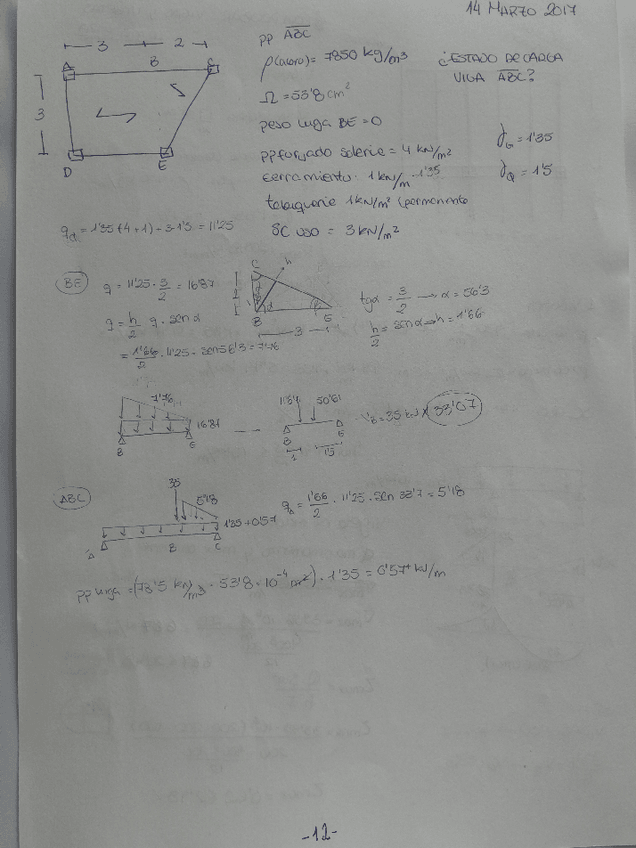 14 MARZO 2017
3 2
A B C
3
D E
pp ABC
ρ(acero) = 7850 kg/m3
Ω = 53'8 cm²
peso viga BE = 0
pp forjado + solería = 4 kN/m²
cerramiento: 1 kN/m · 1'35
tabiquería 1 kN/m² (permanente
SC uso = 3 kN/m²
¿ESTADO DE CARGA
VIGA ABC?
γG = 1'35
γQ = 1'5
qd = 1'35 (4+1) + 3·1'5 = 11'25
BE
q = 11'25 · 3/2 = 16'87
q = h/2 · q · sen α
= 1'66/2 · 11'25 · sen 56'3 = 7'76
C h
B E
3
tgα = 3/2 → α = 56'3
h/2 = sen α → h = 1'66
7'76
16'87
B E
11'64 50'61
B E
1 1'5
VB = 35 kN 33'07
ABC
35
5'18
1'35 + 0'57
A B C
qd = 1'66/2 · 11'25 · sen 33'7 = 5'18
pp viga = (78'5 kN/m3 · 53'8 · 10⁻⁴ m²) · 1'35 = 0'57 kN/m
-12-